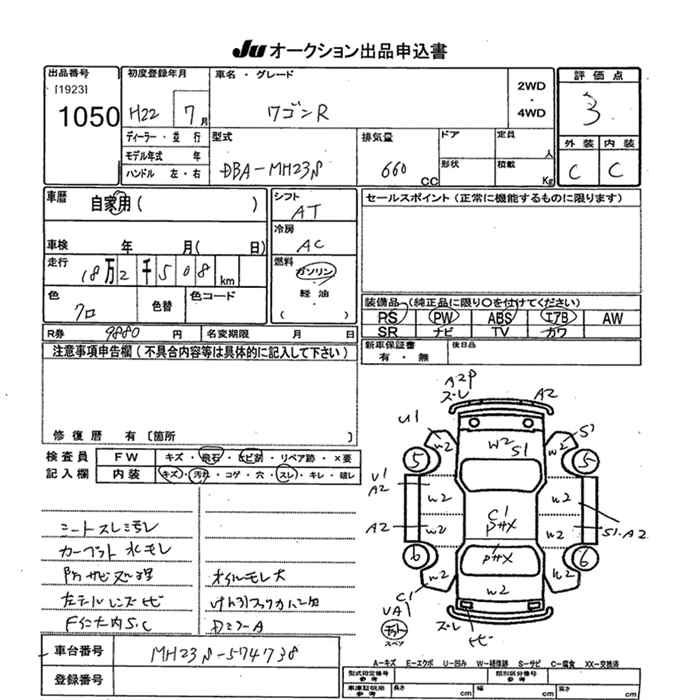 Ju オークション出品申込書
出品番号
[1923]
1050
初度登録年月
H22 7月
車名・グレード
ワゴンR
2WD
・
4WD
評価点
3
外装 内装
C C
ディーラー・並行
モデル年式 年
ハンドル 左・右
型式
DBA-MH23S
排気量
660 CC
ドア
形状
定員 人
積載 Kg
車歴
自家用( )
車検 年 月( 日)
走行
18万2千508km
色
クロ
色替
色コード
シフト
AT
冷房
AC
燃料
ガソリン
・
軽油
( )
セールスポイント(正常に機能するものに限ります)
装備品(純正品に限り○を付けてください)
PS PW ABS エアB AW
SR ナビ TV カワ
R券 9880 円 名変期限 月 日
新車保証書
有・無
後日品
注意事項申告欄(不具合内容等は具体的に記入して下さい)
修復歴 有〔箇所 〕
検査員
記入欄
FW キズ・飛石・ヒビ割・リペア跡・×要
内装 キズ・汚れ・コゲ・穴・スレ・キレ・破レ
シートスレヨゴレ
カーペット水モレ
左テールレンズヒビ
オイルモレ大
Dミラー A
車台番号 MH23S-574738
登録番号
A2P
ズレ
A2
U1
W2
S1
W2
S1
W2
5
5
U1
A2
W2
W2
C1
A2
W2
W2
S1.A2
6
6
W2
W2
C1
UA1
W2
ズレ
ヒビ
スペア
A-キズ E-エクボ U-凹み W-補修跡 S-サビ C-腐食 XX-交換済
型式指定番号
参考
類別区分番号
参考
車庫証明用
参考
長さ cm 幅 cm 高さ cm